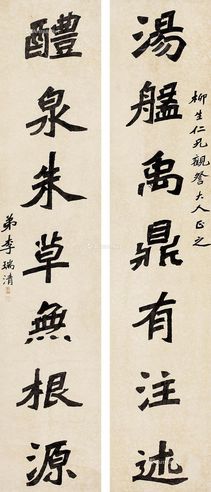 湯盤禹鼎有注述
柳生仁兄觀察大人正之
醴泉朱草無根源
弟李瑞清